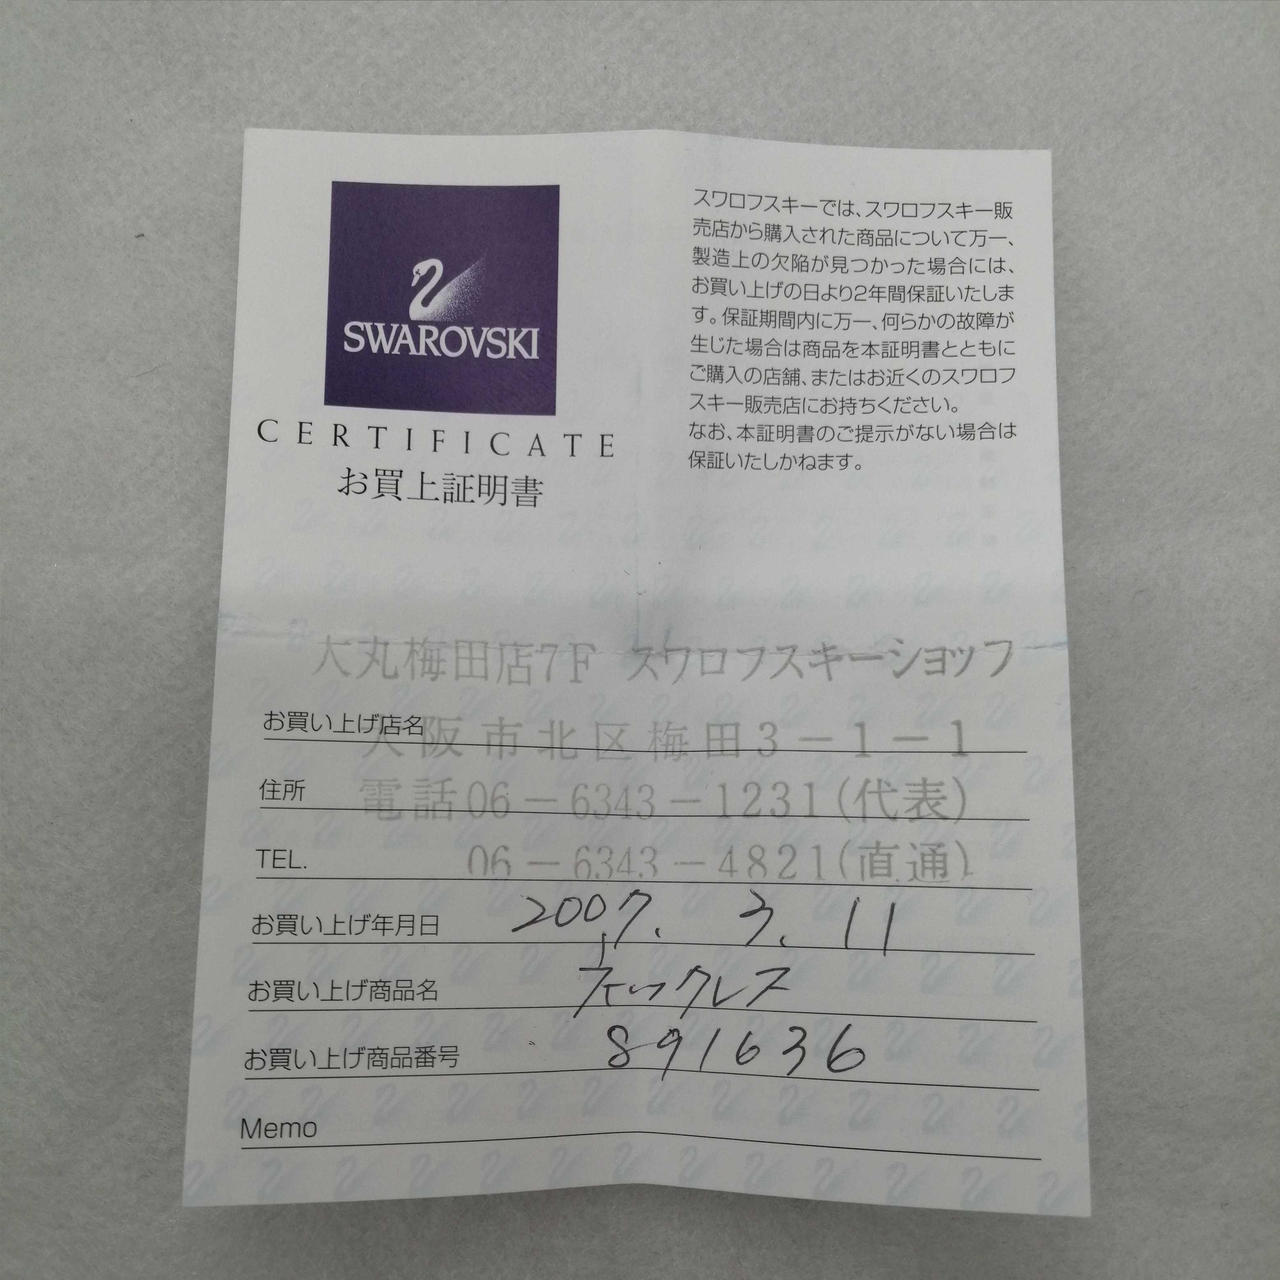 SWAROVSKI
CERTIFICATE
お買上証明書
スワロフスキーでは、スワロフスキー販
売店から購入された商品について万一、
製造上の欠陥が見つかった場合には、
お買い上げの日より2年間保証いたしま
す。保証期間内に万一、何らかの故障が
生じた場合は商品を本証明書とともに
ご購入の店舗、またはお近くのスワロフ
スキー販売店にお持ちください。
なお、本証明書のご提示がない場合は
保証いたしかねます。
大丸梅田店7F スワロフスキーショップ
お買い上げ店名 大阪市北区梅田3-1-1
住所 電話06-6343-1231(代表)
TEL. 06-6343-4821(直通)
お買い上げ年月日 2007. 3. 11
お買い上げ商品名 ネックレス
お買い上げ商品番号 891636
Memo